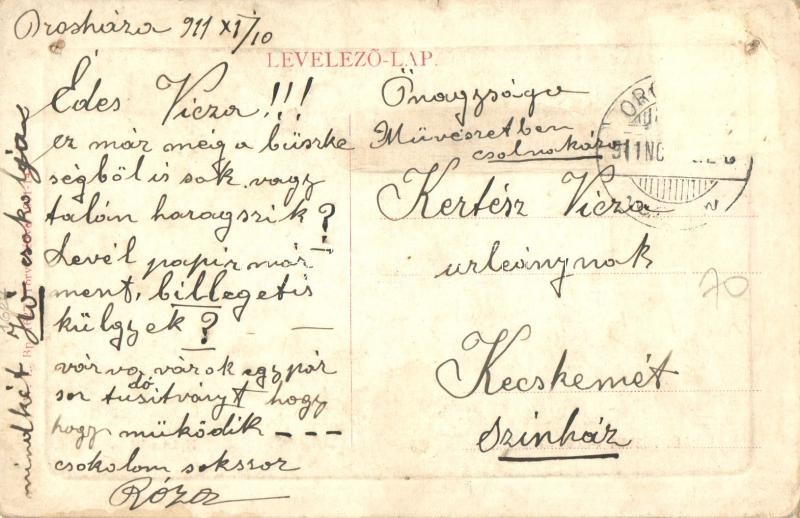 Orosháza 911 XI/10
LEVELEZŐ-LAP.
Édes Vicza!!!
ez már még a büszke
ségből is sok vagy
talán haragszik?
Levél papir már
ment, billeget is
külgyek?
várva várok egy pár
sor tudósitványt hogy
hogy müködik ---
csokolom sokszor
Róza
mindkét Jó csokolja
Őnagysága
Müvészetben
csolnakázó
Kertész Vicza
urleánynak
Kecskemét
Szinház
ORO
911 NO
70